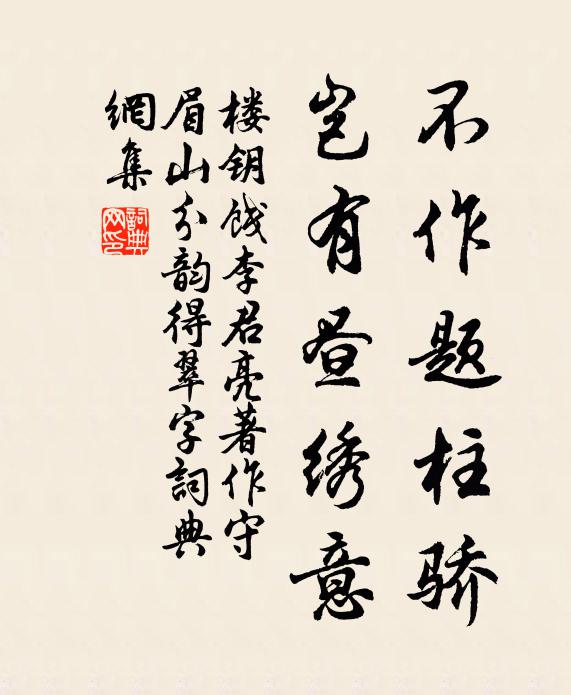 不作题柱骄
岂有昼绣意
楼钥饯李君亮著作守
眉山分韵得翠字詞典
網集
詞典
网印